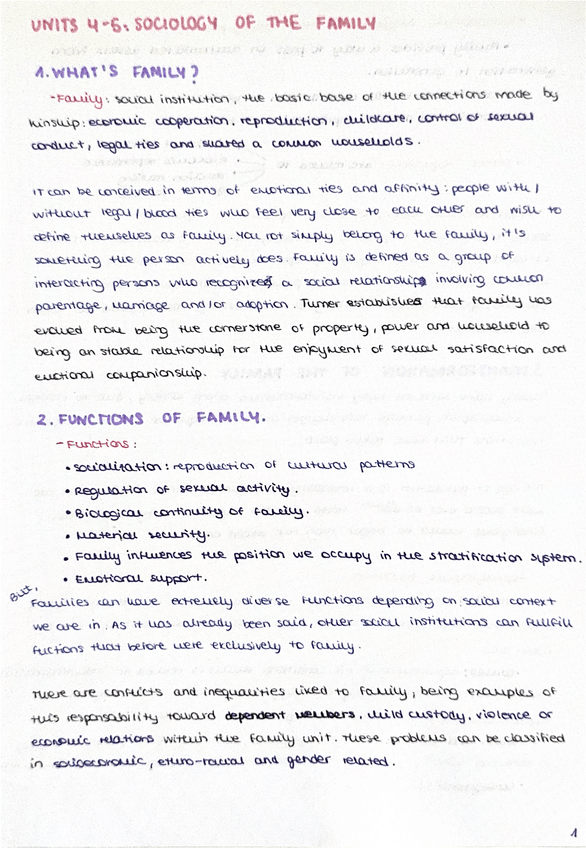 UNITS 4-5: SOCIOLOGY OF THE FAMILY
1. WHAT'S FAMILY?
- Family: social institution, the basic base of the connections made by
kinship: economic cooperation, reproduction, childcare, control of sexual
conduct, legal ties and shared a common households.
IT can be conceived in terms of emotional ties and affinity: people with/
without legal/blood ties who feel very close to each other and wish to
define themselves as family. You not simply belong to the family, it's
something the person actively does. Family is defined as a group of
interacting persons who recognizes a social relationship involving common
parentage, marriage and/or adoption. Turner establishes that family has
evolved from being the cornerstone of property, power and household to
being an stable relationship for the enjoyment of sexual satisfaction and
emotional companionship.
2. FUNCTIONS OF FAMILY.
- Functions:
• Socialization: reproduction of cultural patterns
• Regulation of sexual activity.
• Biological continuity of family.
• Material security.
• Family influences the position we occupy in the stratification system.
• Emotional support.
But,
Families can have extremely diverse functions depending on social context
we are in. As it has already been said, other social institutions can fullfill
fuctions that before were exclusively to family.
There are conflicts and inequalities liked to family, being examples of
this responsability toward dependent members, child custody, violence or
economic relations within the family unit. These problems can be classified
in socioeconomic, ethno-racial and gender related.
1